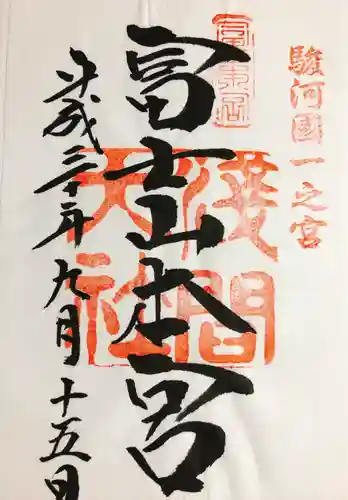 駿河國一之宮
富士山本宮
淺間大社
平成三十年九月十五日